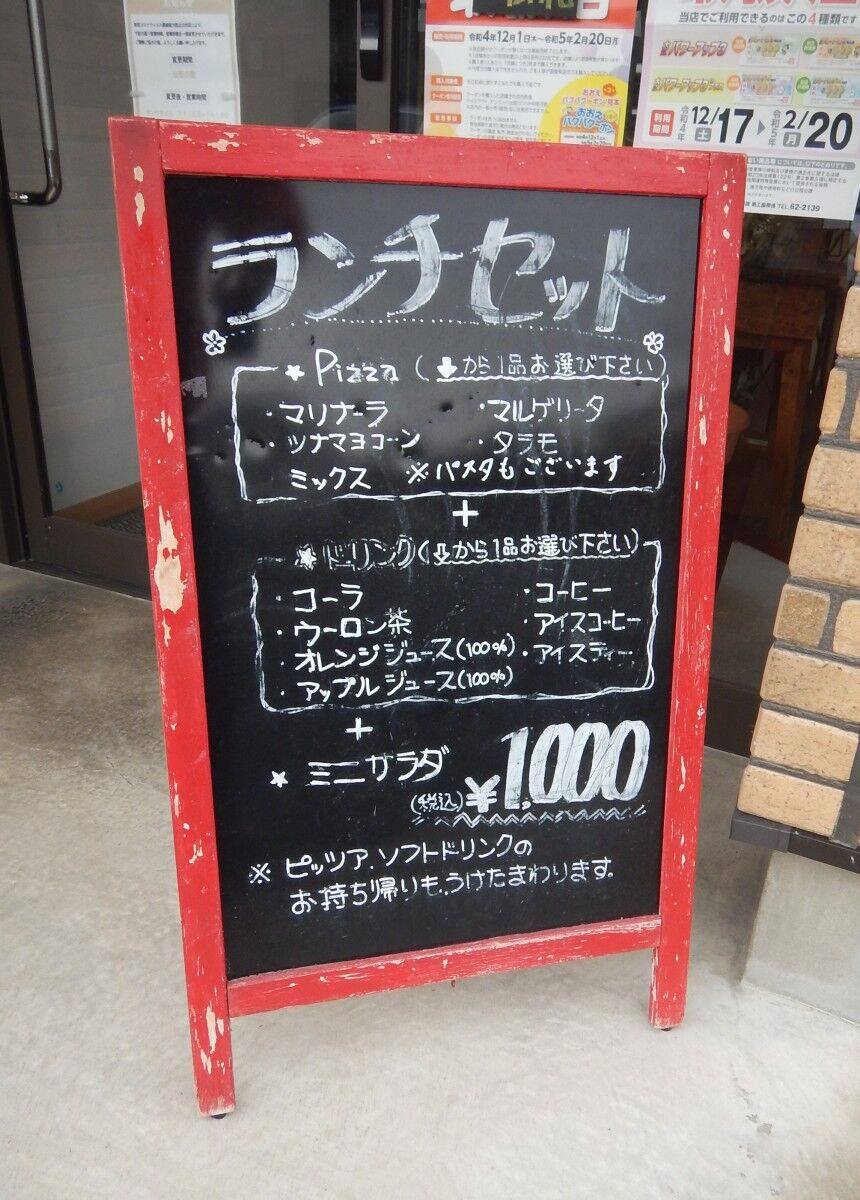 変更期間
変更後・営業時間
令和4年12月1日木～令和5年2月20日月
おおえ
パクパククーポン
当店でご利用できるのはこの4種類です
利用
期間
令和4年 12/17 土 ▶ 令和5年 2/20 月
TEL.62-2139
ランチセット
★ Pizza (⬇から1品お選び下さい)
・マリナーラ ・マルゲリータ
・ツナマヨコーン ・タラモ
ミックス ※パスタもございます
+
★ドリンク(⇩から1品お選び下さい)
・コーラ ・コーヒー
・ウーロン茶 ・アイスコーヒー
・オレンジジュース(100%) ・アイスティー
・アップルジュース(100%)
+
★ ミニサラダ
(税込)¥1,000
※ ピッツア、ソフトドリンクの
お持ち帰りも、うけたまわります。